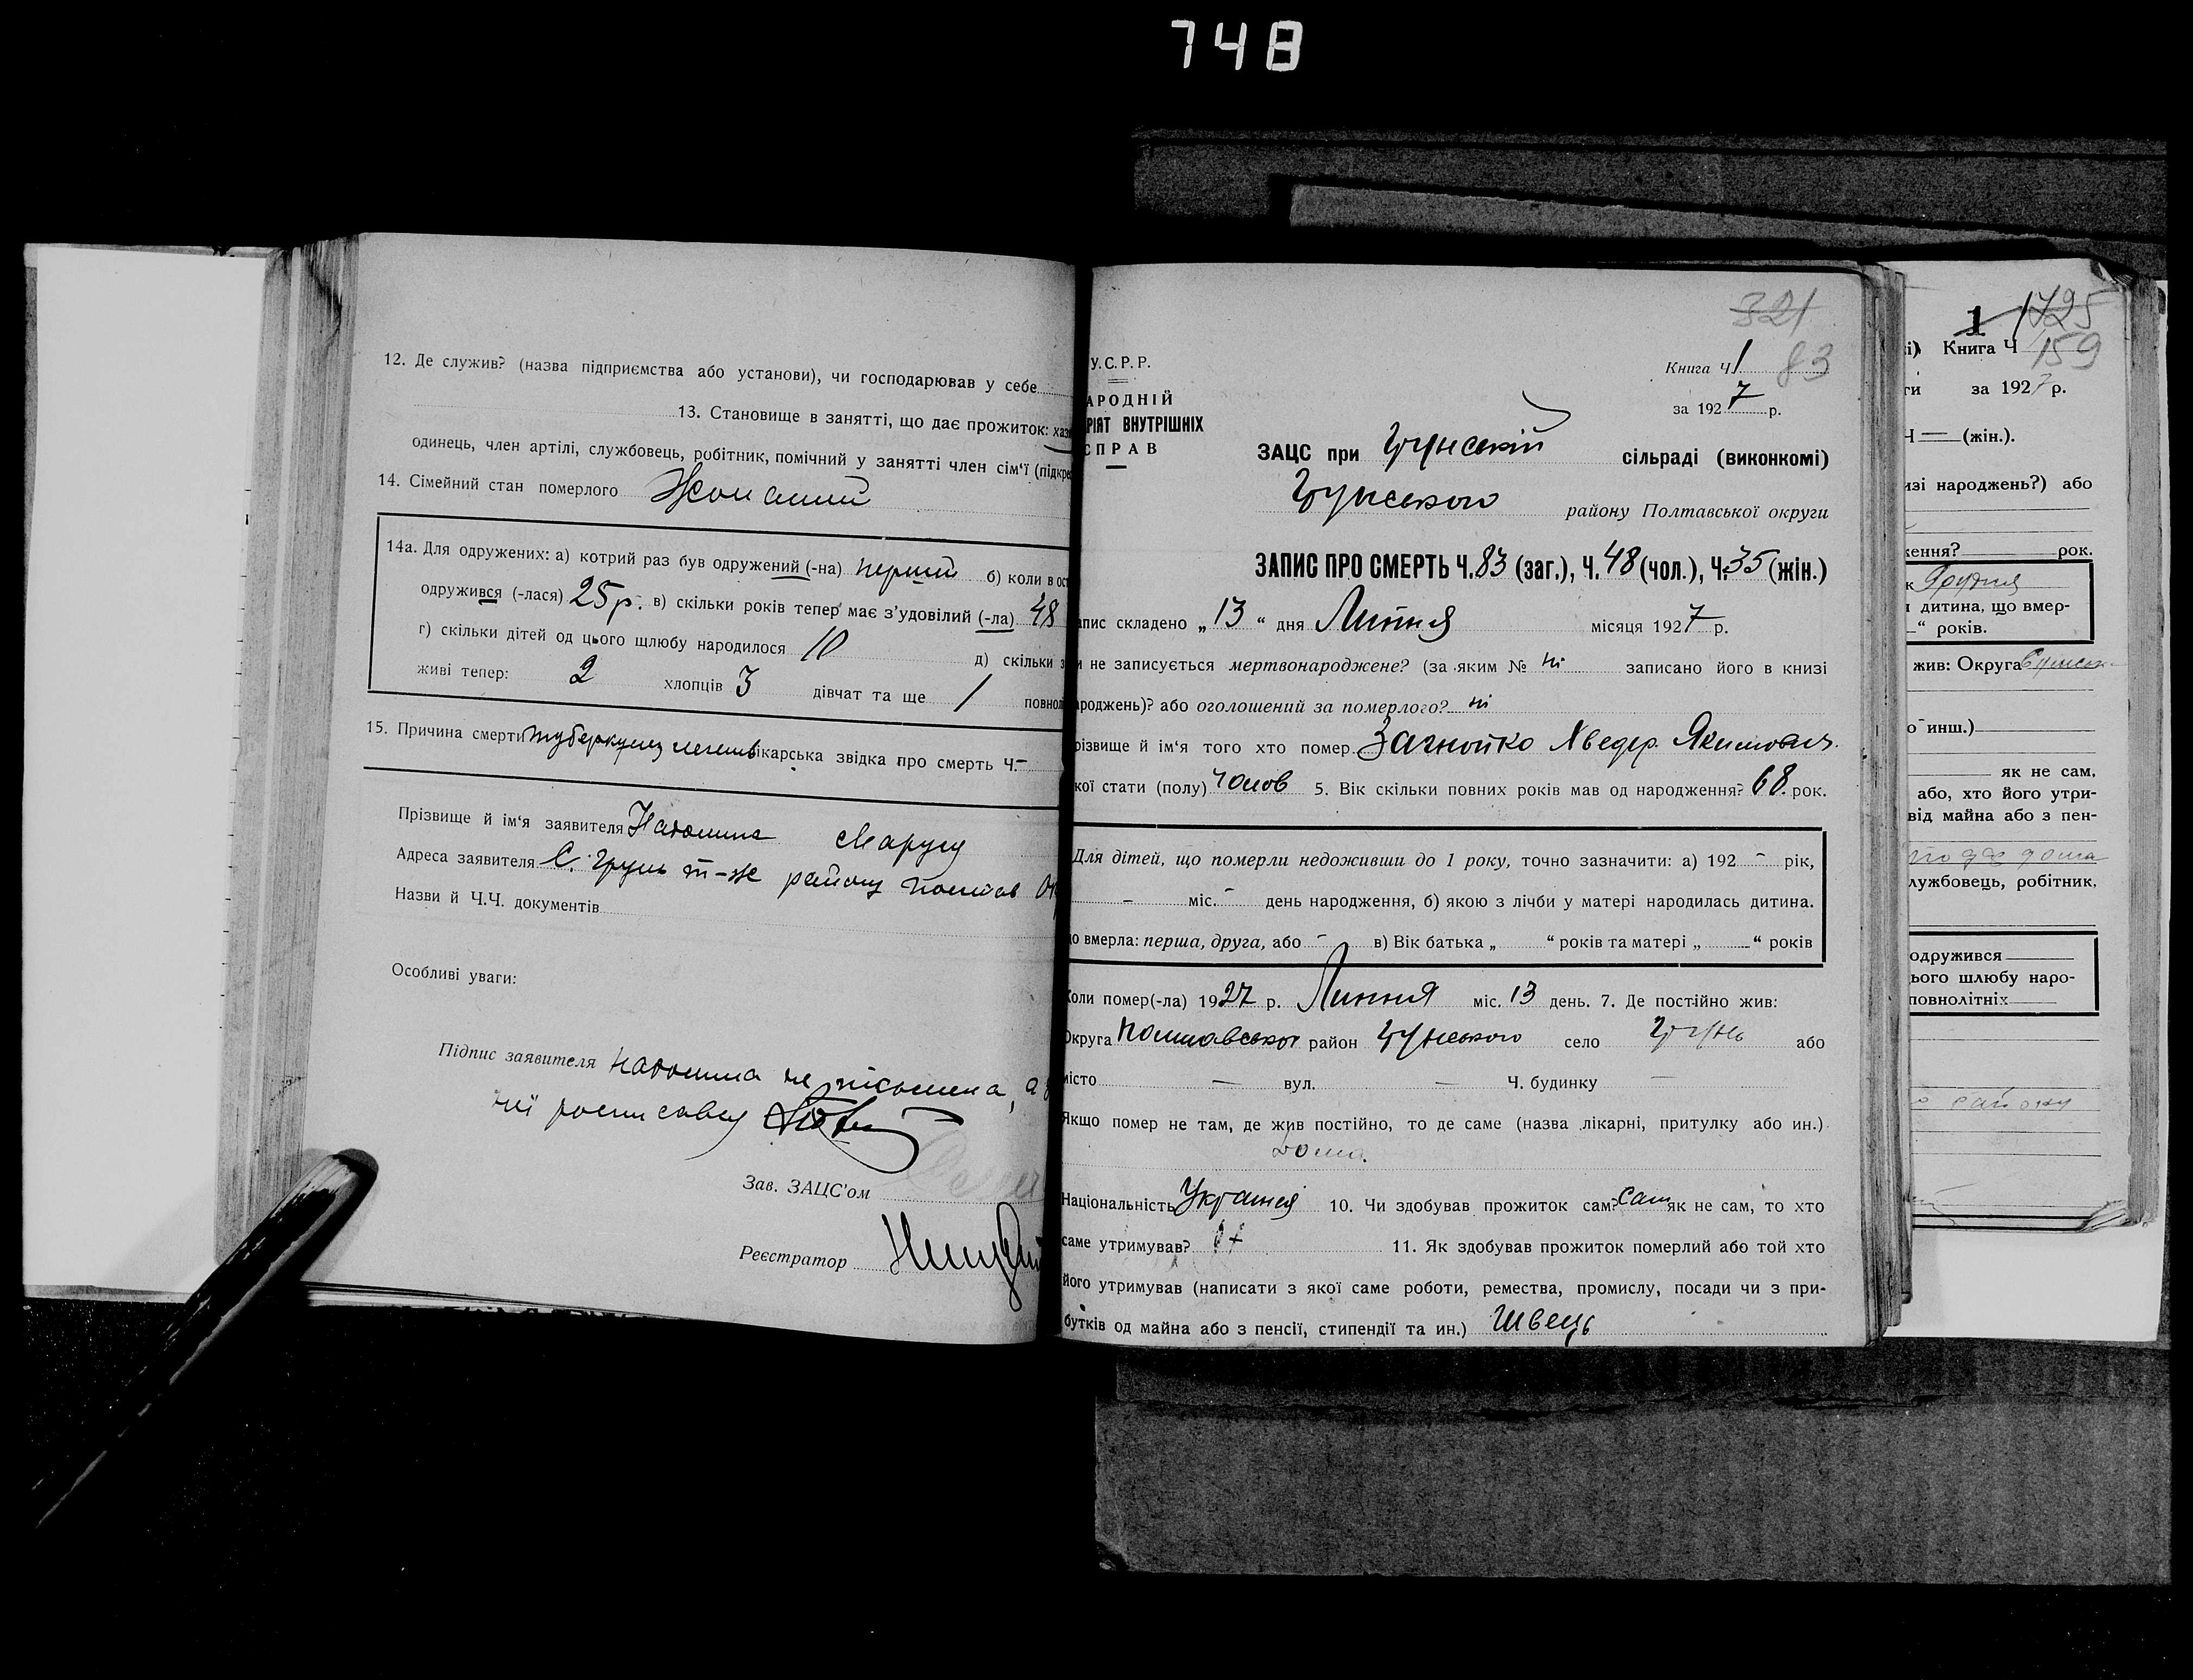 748
12. Де служив? (назва підприємства або установи), чи господарював у себе
13. Становище в занятті, що дає прожиток: хаз
одинець, член артілі, службовець, робітник, помічний у занятті член сім'ї (підкре
14. Сімейний стан померлого Жонатий
14а. Для одружених: а) котрий раз був одружений (-на) перший б) коли в ост
одружився (-лася) 25 р. в) скільки років тепер має з'удовілий (-ла) 48
г) скільки дітей од цього шлюбу народилося 10 д) скільки з
живі тепер: 2 хлопців 3 дівчат та ще 1 повнол
15. Причина смерти туберкульоз легенів ікарська звідка про смерть Ч. -
Прізвище й ім'я заявителя Маруся
Адреса заявителя С. Грунь т-же району Полтав Ок
Назви й Ч.Ч. документів
Особливі уваги:
Підпис заявителя не письмена, а
неї росписався
Зав. ЗАЦС'ом
Реєстратор
У.С.Р.Р.
АРОДНІЙ
РІЯТ ВНУТРІШНІХ
СПРАВ
321
Книга Ч. 1 83
за 1927 р.
ЗАЦС при Грунській сільраді (виконкомі)
Грунського району Полтавської округи
ЗАПИС ПРО СМЕРТЬ Ч. 83 (заг.), Ч. 48 (чол.), Ч. 35 (жін.)
апис складено „13“ дня Липня місяця 1927 р.
и не записується мертвонароджене? (за яким № ні записано його в книзі
ароджень)? або оголошений за померлого? ні
різвище й ім'я того хто помер Загнойко Хведер Якимович
кої стати (полу) Чолов 5. Вік скільки повних років мав од народження? 68 рок.
Для дітей, що померли недоживши до 1 року, точно зазначити: а) 192 - рік,
- міс. - день народження, б) якою з лічби у матері народилась дитина.
о вмерла: перша, друга, або - в) Вік батька „ “ років та матері „ “ років
Коли помер(-ла) 1927 р. Липня міс. 13 день. 7. Де постійно жив:
Округа Полтавської район Грунського село Грунь або
місто — вул. — Ч. будинку —
Якщо помер не там, де жив постійно, то де саме (назва лікарні, притулку або ин.)
дома.
Національність Українец 10. Чи здобував прожиток сам? Сам як не сам, то хто
саме утримував? 11. Як здобував прожиток померлий або той хто
його утримував (написати з якої саме роботи, ремества, промислу, посади чи з при-
бутків од майна або з пенсії, стипендії та ин.) Швець
1 1725
і) Книга Ч 159
ги за 1927 р.
Ч — (жін.).
изі народжень?) або
ження? рок.
к Друга
дитина, що вмер-
“ років.
жив: Округа
о инш.)
як не сам,
або, хто його утри-
від майна або з пен-
лужбовець, робітник,
одружився
ього шлюбу наро-
повнолітніх
району